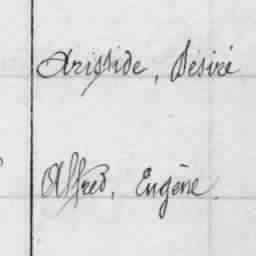 Aristide, Désiré
Alfred, Eugène.